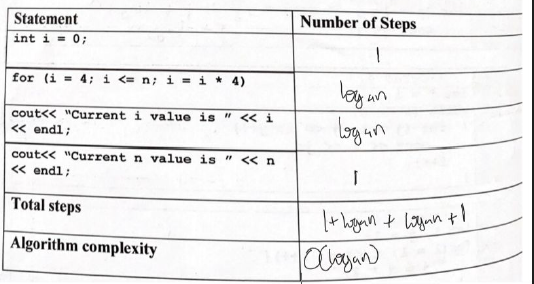 Statement Number of Steps
int i = 0; 1
for (i = 4; i <= n; i = i * 4) log₄n
cout<< "Current i value is " << i
<< endl; log₄n
cout<< "Current n value is " << n
<< endl; 1
Total steps 1+log₄n + log₄n +1
Algorithm complexity O(log₄n)